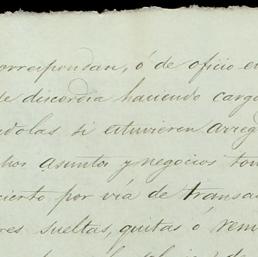 correspondan, ó de oficio en
de discordia haciendo carg
ndolas, si estuvieren arreg
hos asuntos y negocios tom
cierto por via de transac
res sueltas, quitas ó rem